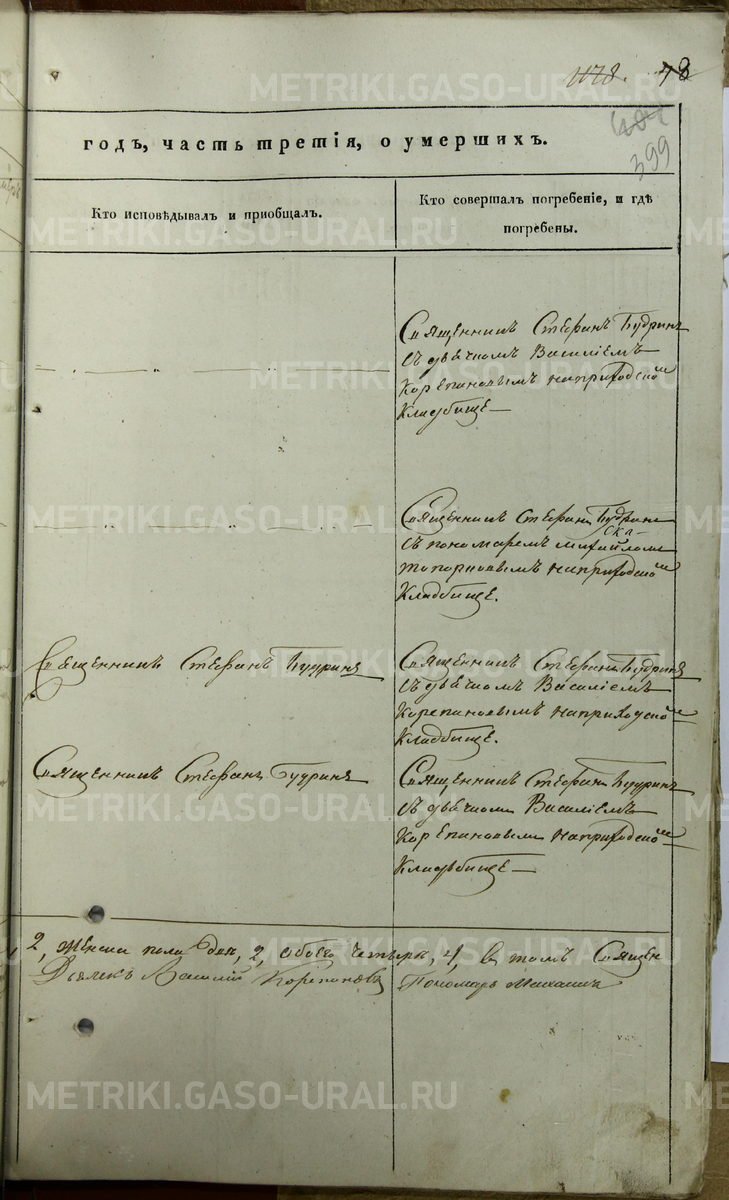 1178. 78
404
399
годъ, часть третія, о умершихъ.
Кто исповѣдывалъ и приобщалъ.
Кто совершалъ погребеніе, и гдѣ
погребены.
Священникъ Стефанъ Будринъ
съ дьячкомъ Василіемъ
Корепановымъ наприходском
Кладбище
Священникъ Стефанъ Будринъ
съ пономаремъ Михайломъ
Топорковымъ наприходском
Кладбище.
Священникъ Стефанъ Будринъ
Священникъ Стефанъ Будринъ
съ дьячкомъ Василіемъ
Корепановымъ наприходском
Кладбище.
Священникъ Стефанъ Будринъ
Священникъ Стефанъ Будринъ
съ дьячкомъ Василіемъ
Корепановымъ наприходском
Кладбище
2, женска пола два, 2, обоего четыре, 4, в томъ Священ
Дьячекъ Василий Корепановъ Пономарь Михаилъ
METRIKI.GASO-URAL.RU